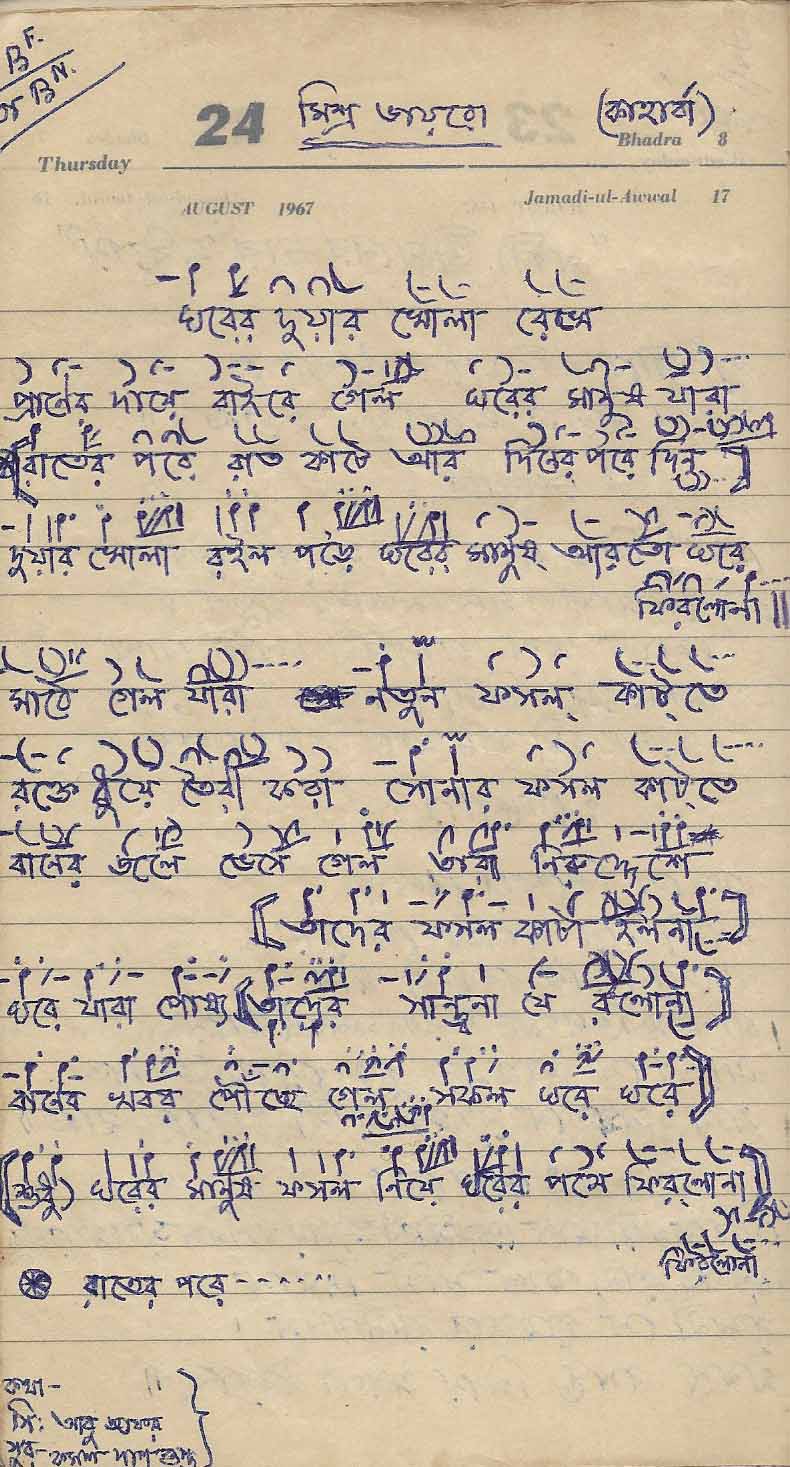 BF.
BN.
24 মিশ্র ভায়রো (কাহার্বা)
Bhadra 8
Thursday
AUGUST 1967 Jamadi-ul-Awwal 17
ঘরের দুয়ার খোলা রেখে
প্রাণের দায়ে বাইরে গেল ঘরের মানুষ যারা
রাতের পরে রাত কাটে আর দিনের পরে দিন
দুয়ার খোলা রইল পড়ে ঘরের মানুষ আরতো ঘরে
ফিরলোনা ||
মাঠে গেল যারা নতুন ফসল্ কাট্তে
রক্তে ধুয়ে তৈরী করা সোনার ফসল কাট্তে
বানের জলে ভেসে গেল তারা নিরুদ্দেশে
তাদের ফসল কাটা হলনা
ঘরে যারা পোষ্য তাদের সান্ত্বনা যে রলোনা
বানের খবর পৌঁছে গেল সকল ঘরে ঘরে
(শুধু) ঘরের মানুষ ফসল নিয়ে ঘরের পানে ফির্লোনা
ফির্লোনা
রাতের পরে ------
কথা -
সি: আবু জাফর
সুর-